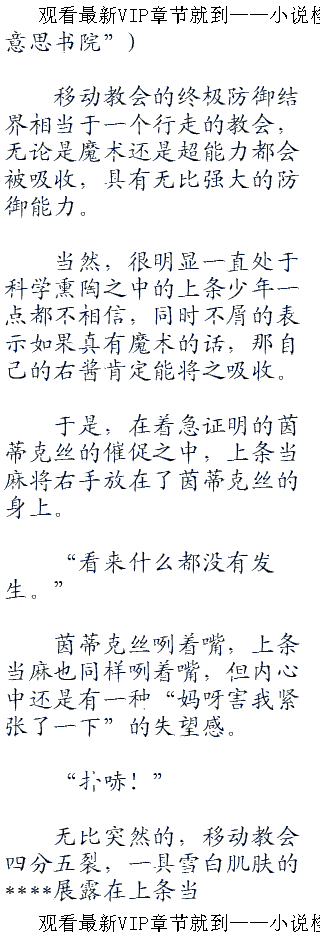 观看最新VIP章节就到一一小说
意思书院”)
移动教会的终极防御结
界相当于一个行走的教会，
无论是魔术还是超能力都会
被吸收，具有无比强大的防
御能力。
当然，很明显一直处于
科学熏陶之中的上条少年一
点都不相信，同时不屑的表
示如果真有魔术的话，那自
己的右酱肯定能将之吸收。
于是，在着急证明的茵
蒂克丝的催促之中，上条当
麻将右手放在了茵蒂克丝的
身上。
“看来什么都没有发
生。”
茵蒂克丝咧着嘴，上条
当麻也同样咧着嘴，但内心
中还是有一种“妈呀害我紧
张了一下”的失望感。
“扑哧！”
无比突然的，移动教会
四分五裂，一具雪白肌肤的
****展露在上条当
观看最新VIP章节就到一一小说